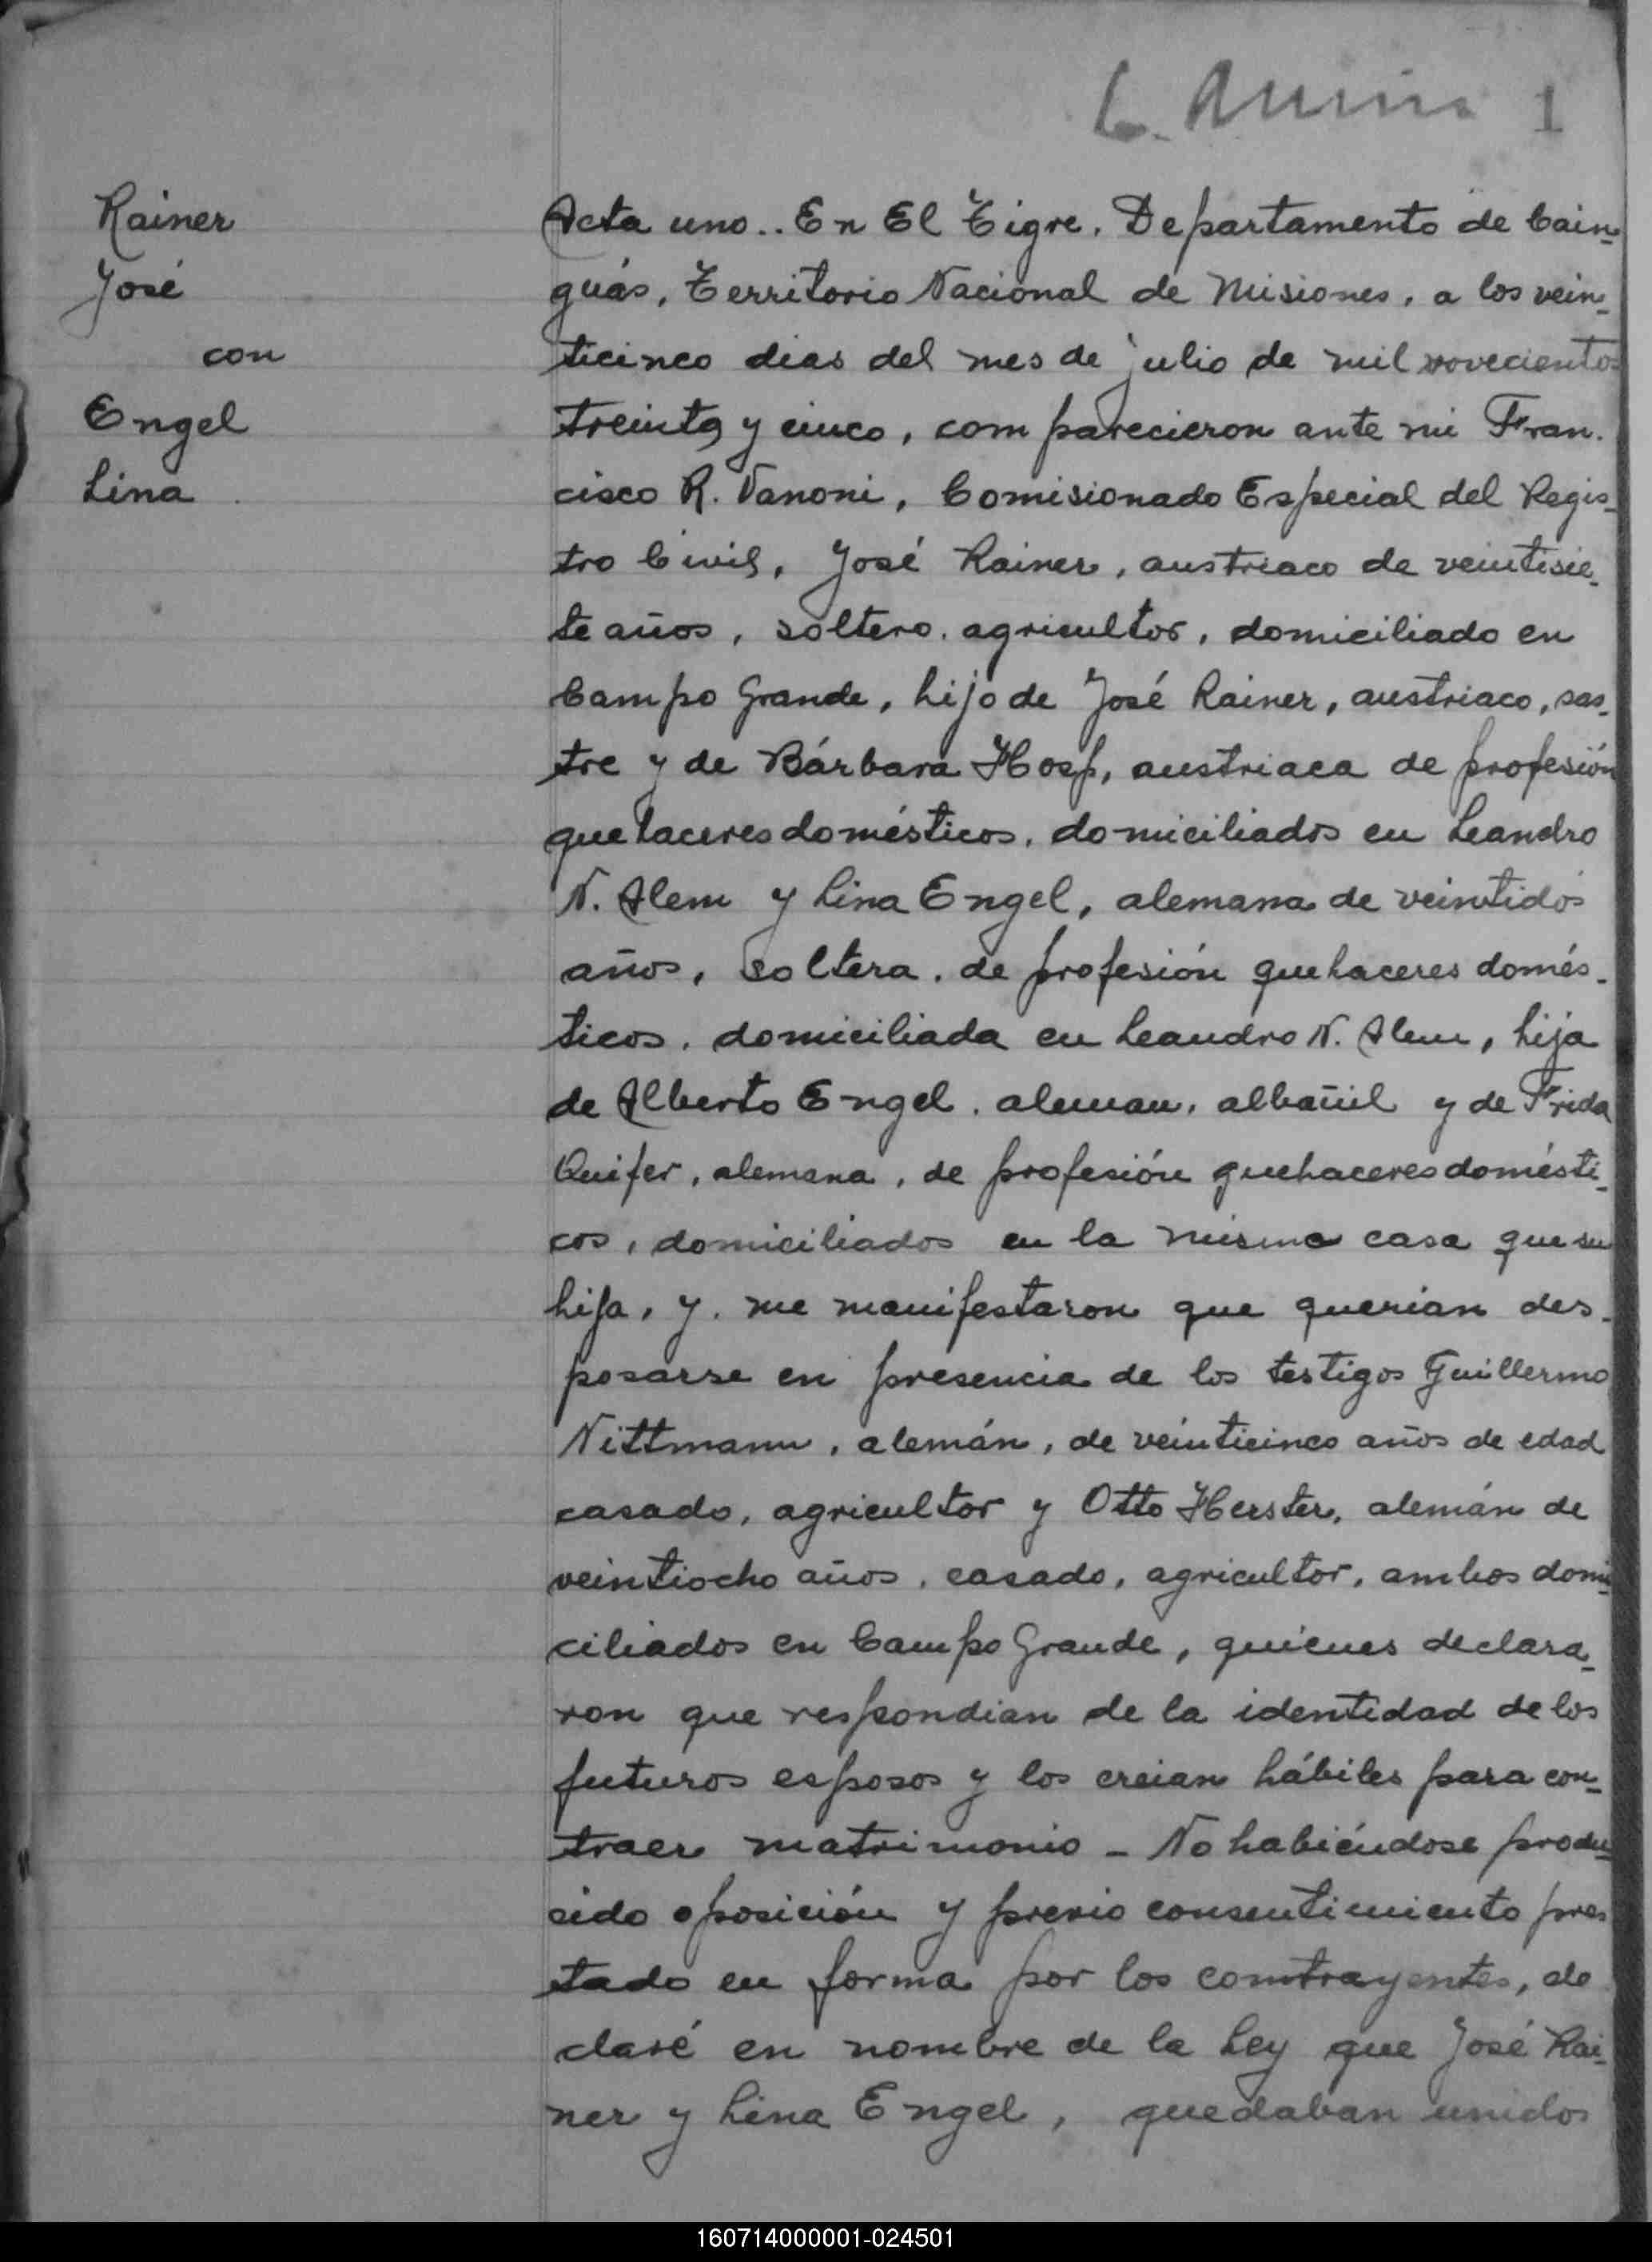 1
Rainer
José
con
Engel
Lina
Acta uno.. En El Tigre, Departamento de Cain-
guás, Territorio Nacional de Misiones, a los vein-
ticinco dias del mes de julio de mil novecientos
treinta y cinco, comparecieron ante mi Fran-
cisco R. Vanoni, Comisionado Especial del Regis-
tro Civil, José Rainer, austriaco de veintisie-
te años, soltero, agricultor, domiciliado en
Campo Grande, hijo de José Rainer, austriaco, sas-
tre y de Bárbara Hosp, austriaca de profesión
quehaceres domésticos, domiciliados en Leandro
N. Alem y Lina Engel, alemana de veintidós
años, soltera, de profesión quehaceres domés-
ticos, domiciliada en Leandro N. Alem, hija
de Alberto Engel, aleman, albañil y de Frida
Quifer, alemana, de profesión quehaceres domésti-
cos, domiciliados en la misma casa que su
hija, y me manifestaron que querian des-
posarse en presencia de los testigos Guillermo
Nittmann, alemán, de veinticinco años de edad
casado, agricultor y Otto Herster, alemán de
veintiocho años, casado, agricultor, ambos domi-
ciliados en Campo Grande, quienes declara-
ron que respondian de la identidad de los
futuros esposos y los creian hábiles para con-
traer matrimonio - No habiéndose produ-
cido oposición y previo consentimiento pres
tado en forma por los contrayentes, de
claré en nombre de la Ley que José Rai-
ner y Lina Engel, quedaban unidos
160714000001-024501